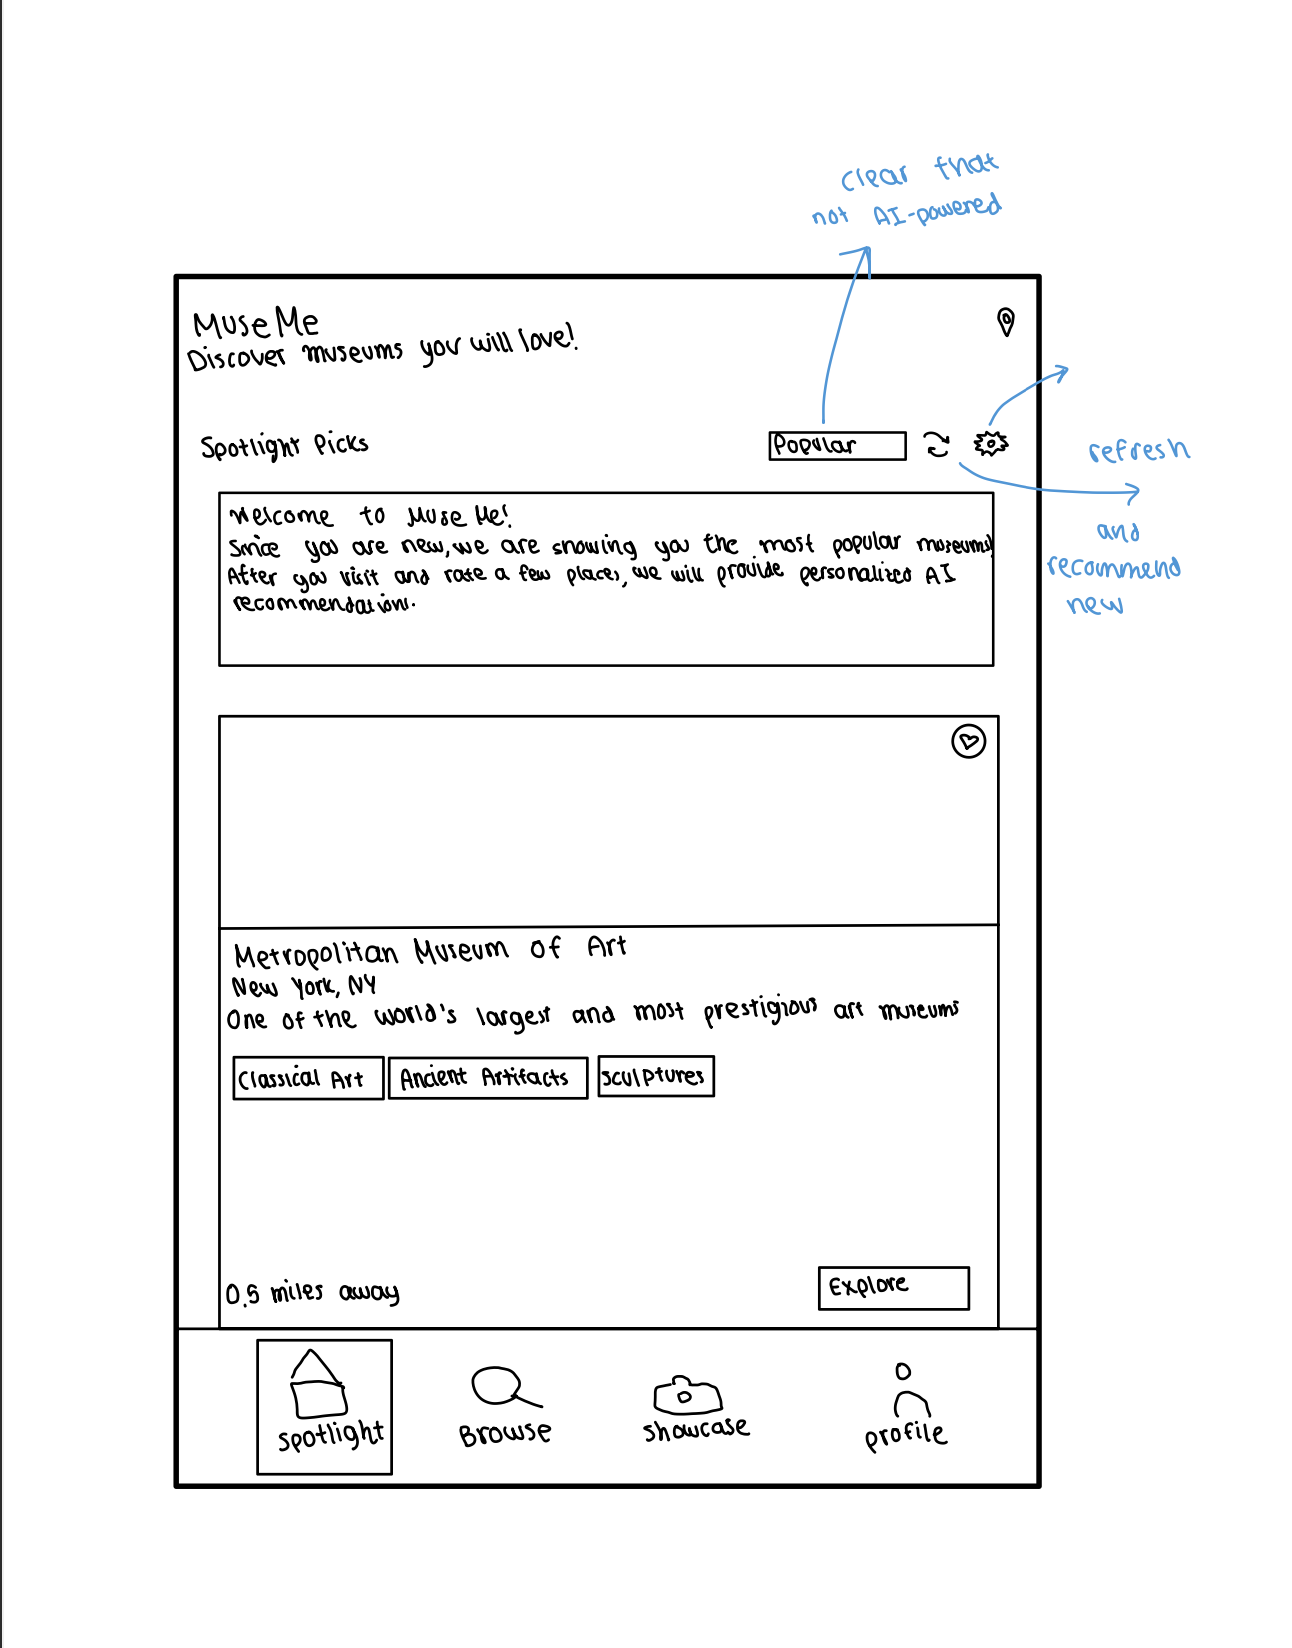 clear that
not AI-powered
MuseMe
Discover museums you will love!
Spotlight Picks
Popular
refresh
and
recommend
new
Welcome to Muse Me!
Since you are new, we are showing you the most popular museums!
After you visit and rate a few places, we will provide personalized AI
recommendation.
Metropolitan Museum of Art
New York, NY
One of the world's largest and most prestigious art museums
Classical Art
Ancient Artifacts
Sculptures
0.5 miles away
Explore
Spotlight
Browse
Showcase
profile